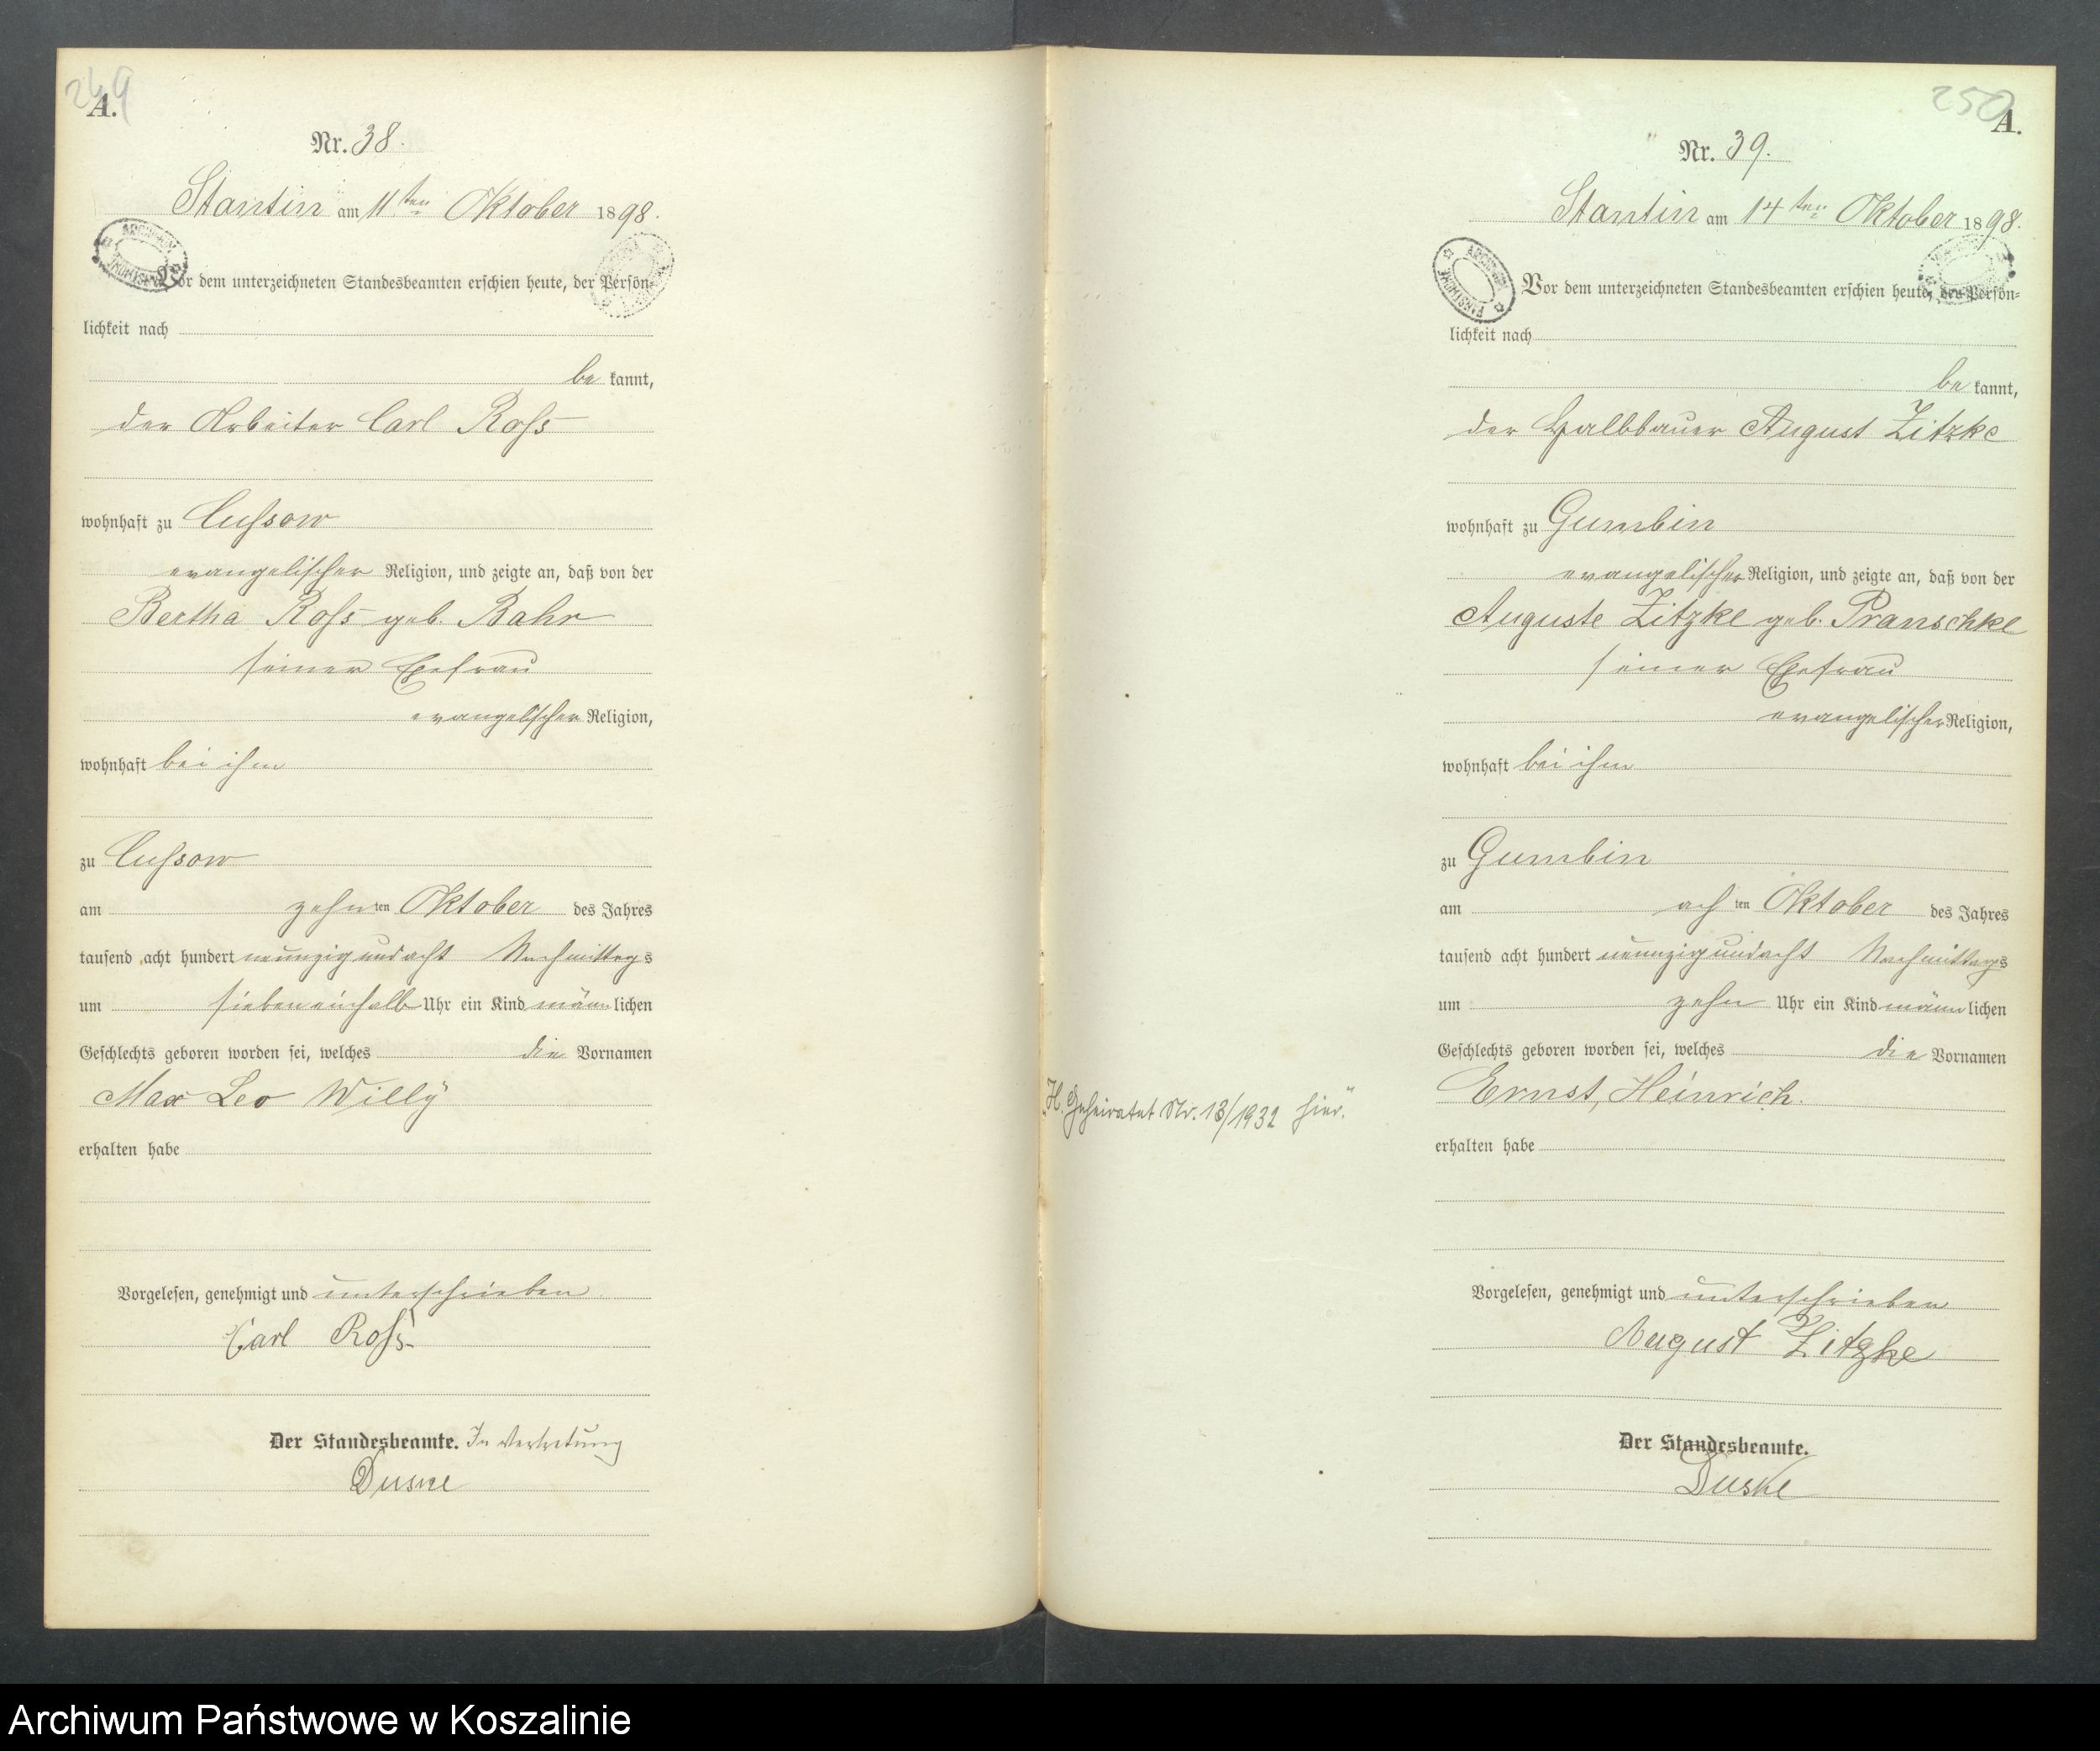 249
A.
Nr. 38.
Stantin am 11ten Oktober 1898.
Vor dem unterzeichneten Standesbeamten erschien heute, der Persön-
lichkeit nach
be kannt,
der Arbeiter Carl Roß
wohnhaft zu Cussow
evangelischer Religion, und zeigte an, daß von der
Bertha Roß geb. Bahr
seiner Ehefrau
evangelischer Religion,
wohnhaft bei ihm
zu Cussow
am zehn ten Oktober des Jahres
tausend acht hundert neunzig und acht Nachmittags
um siebeneinhalb Uhr ein Kind männ lichen
Geschlechts geboren worden sei, welches die Vornamen
Max Leo Willy
erhalten habe
Vorgelesen, genehmigt und unterschrieben
Carl Roß
Der Standesbeamte. In Vertretung
Duske
250
A.
Nr. 39.
Stantin am 14ten Oktober 1898.
Vor dem unterzeichneten Standesbeamten erschien heute, der Persön-
lichkeit nach
be kannt,
der Halbbauer August Zitzke
wohnhaft zu Gumbin
evangelischer Religion, und zeigte an, daß von der
Auguste Zitzke geb. Pranschke
seiner Ehefrau
evangelischer Religion,
wohnhaft bei ihm
zu Gumbin
am ach ten Oktober des Jahres
tausend acht hundert neunzig und acht Nachmittags
um zehn Uhr ein Kind männ lichen
Geschlechts geboren worden sei, welches die Vornamen
Ernst, Heinrich.
erhalten habe
„H. Geheiratet Nr. 13/1932 hier."
Vorgelesen, genehmigt und unterschrieben
August Zitzke
Der Standesbeamte.
Duske
Archiwum Państwowe w Koszalinie